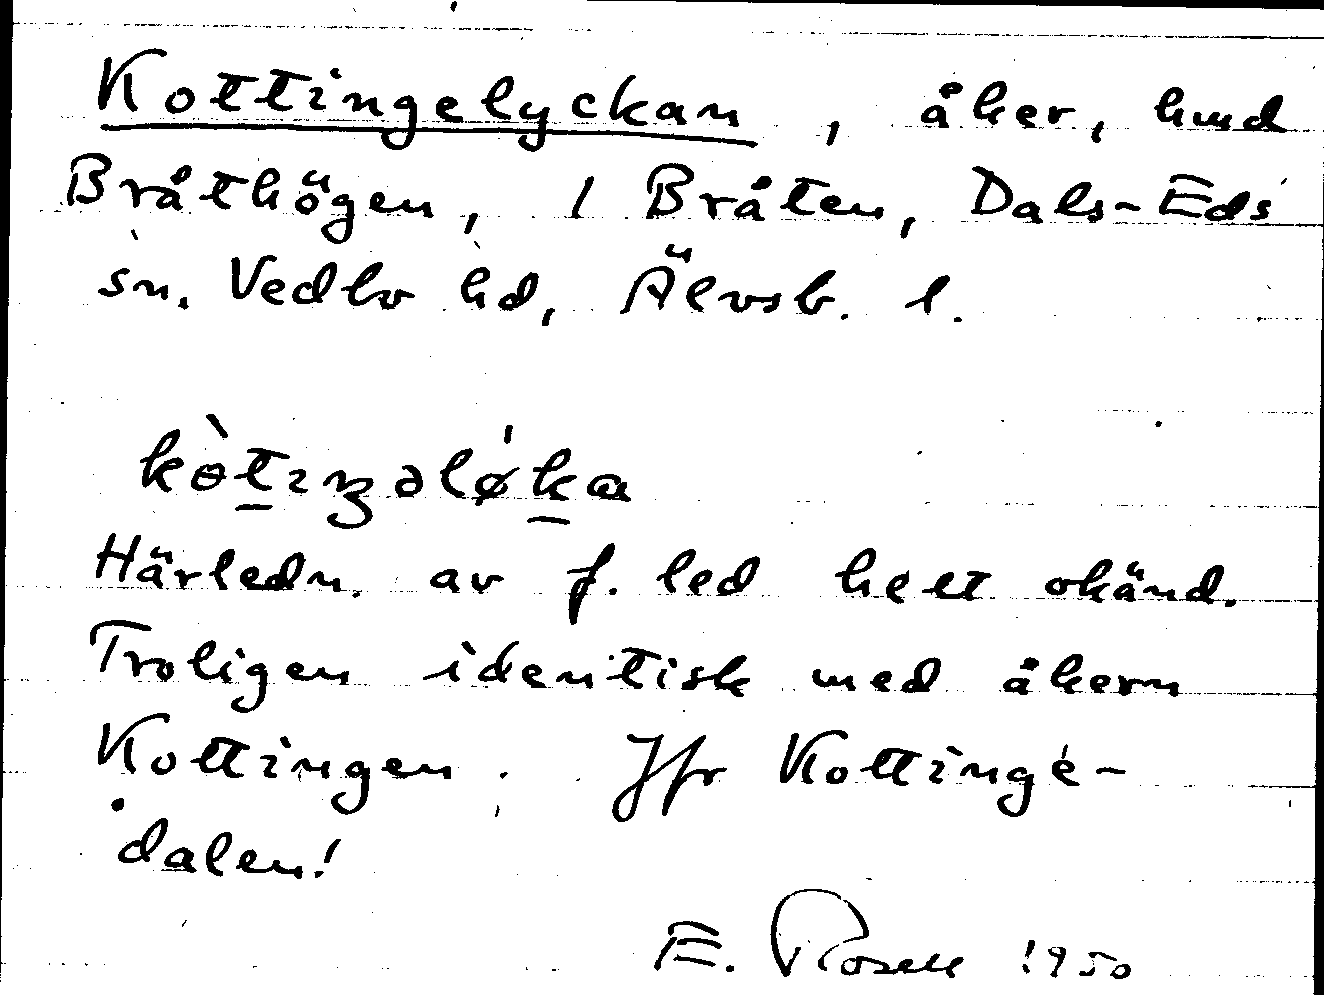 Kottingelyckan, åker, hmd
Bråthögen, 1 Bråten, Dals-Eds
sn. Vedbo hd, Älvsb. l.
kòtiŋəlǿka
Härledn. av f. led helt okänd.
Troligen identisk med åkern
Kottingen. Jfr Kottinge-
dalen!
E. Rosell 1950